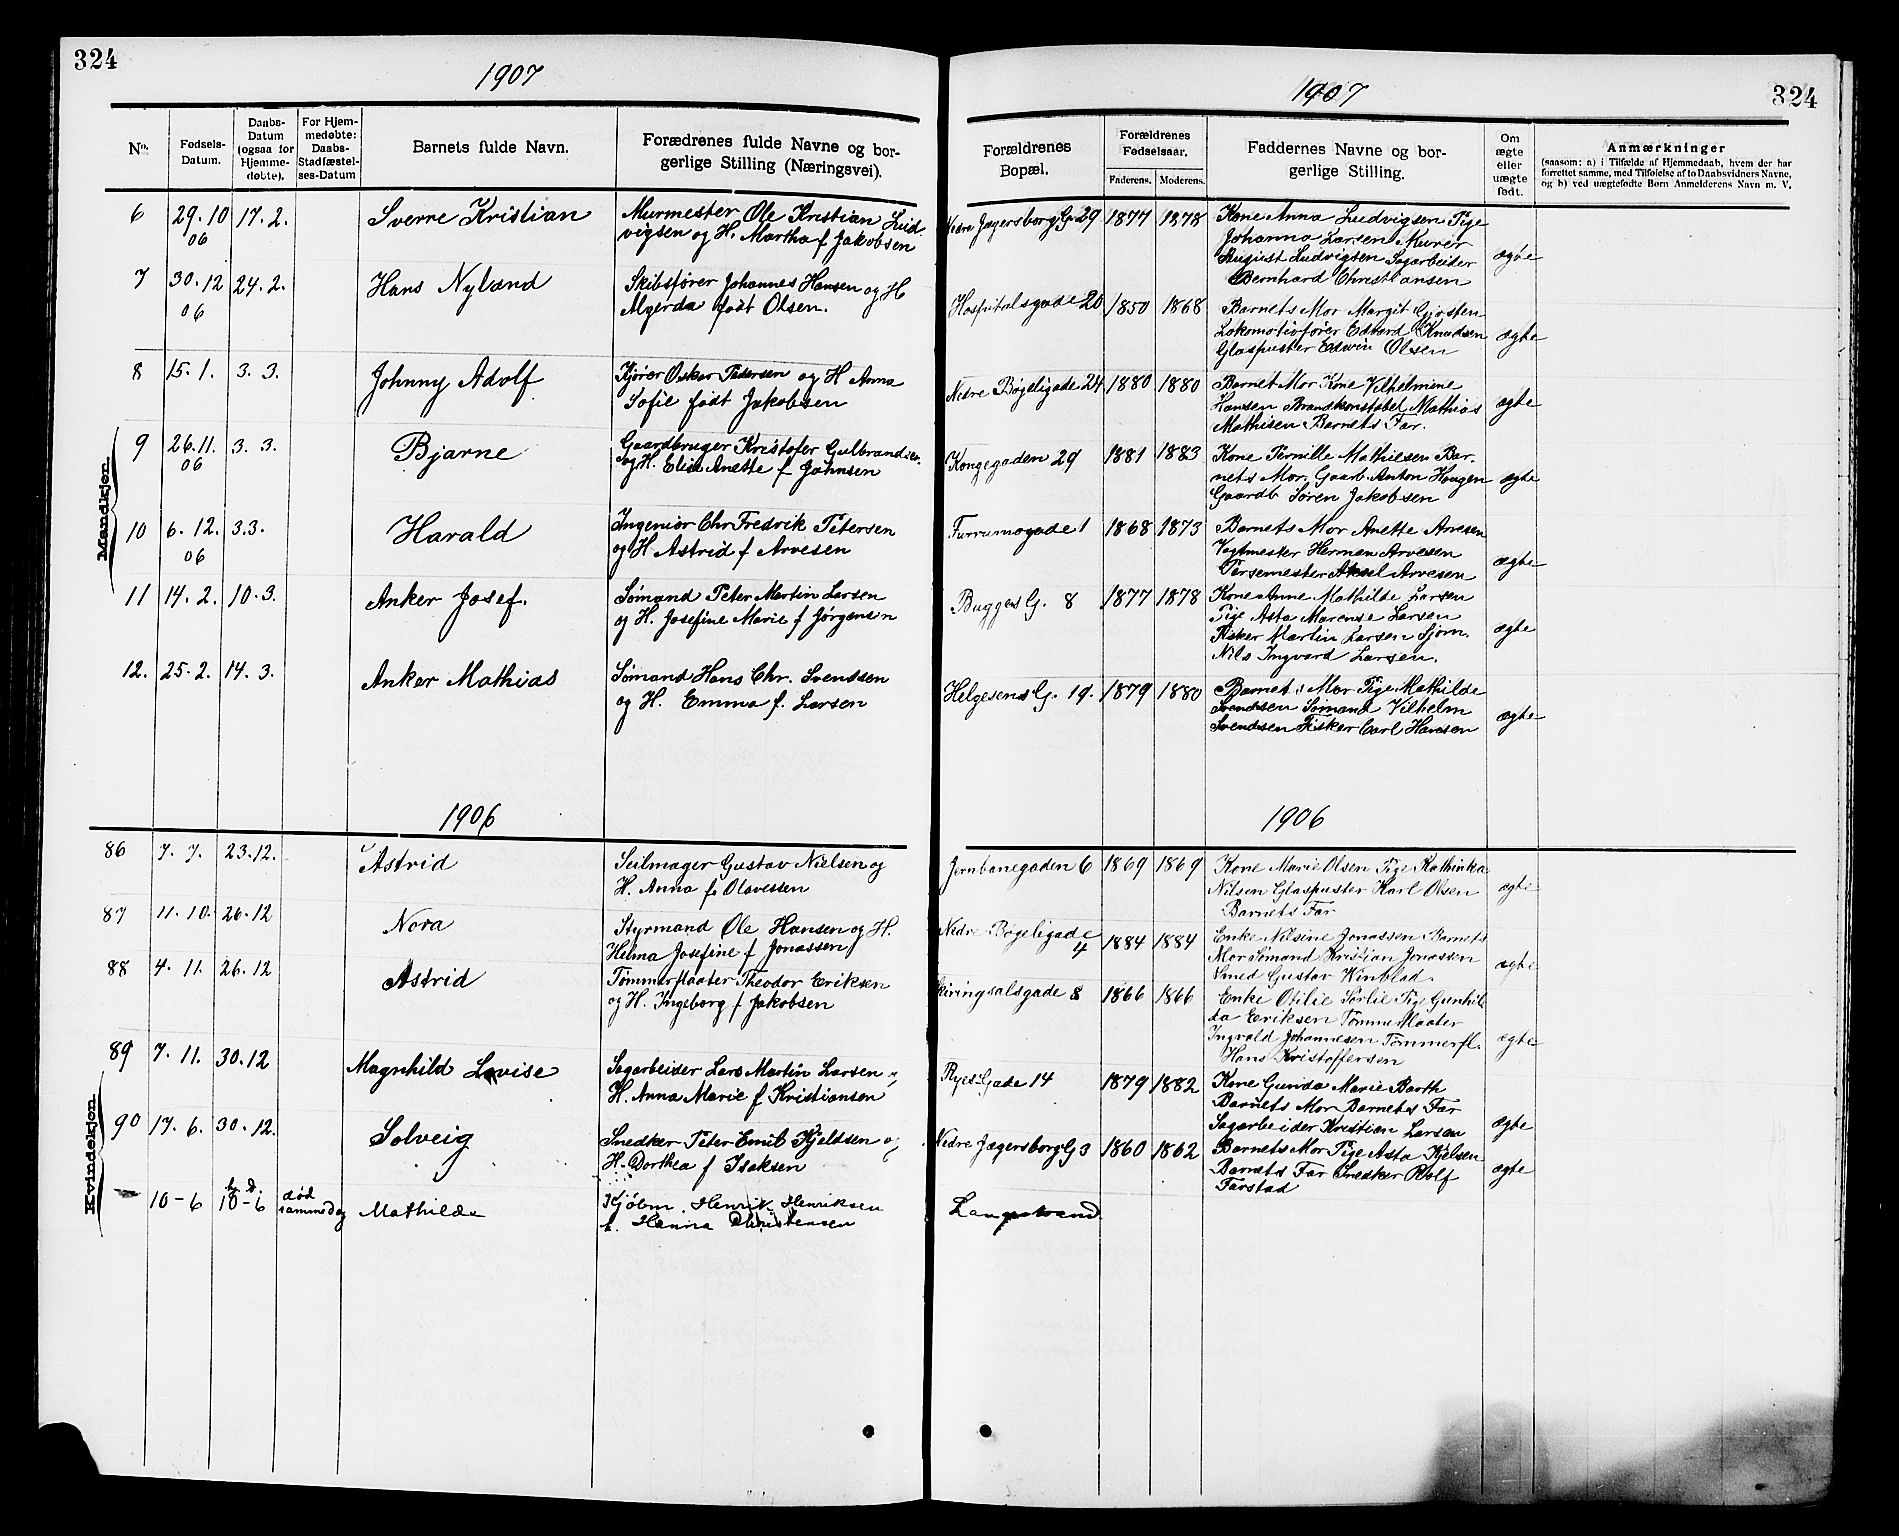 324
1907
No.
Fødsels-
Datum.
Daabs-
Datum
(ogsaa for
Hjemme-
døbte).
For Hjem-
medøbte:
Daabs-
Stadfæstel-
ses-Datum
Barnets fulde Navn.
Forædrenes fulde Navne og bor-
gerlige Stilling (Næringsvei).
Mandkjøn
6 29.10 06 17.2. Sverre Kristian
Murmester Ole Kristian Lud-
vigsen og H. Martha f Jakobsen
7 30.12 06 24.2. Hans Nyland
Skibsfører Johannes Hansen og H
Algerda født Olsen.
8 15.1. 3.3. Johnny Adolf
Kjører Oskar Petersen og H Anna
Sofie født Jakobsen
9 26.11. 06 3.3. Bjarne
Gaardbruger Kristofer Gulbrandsen
og H. Elise Anette f Johnsen
10 6.12. 06 3.3. Harald
Ingeniør Chr Fredrik Petersen
og H Astrid f Arvesen
11 14.2. 10.3. Anker Josef.
Sømand Peter Martin Larsen
og H. Josefine Marie f Jørgensen
12. 25.2. 14.3. Anker Mathias
Sømand Hans Chr. Svendsen
og H. Emma f. Larsen
1906
Kvindekjøn
86 7.7. 23.12. Astrid
Seilmager Gustav Nielsen og
H. Anna f. Olavessen
87 11.10. 26.12 Nora
Styrmand Ole Hansen og H.
Helma Josefine f Jonassen
88 4.11. 26.12 Astrid
Tømmerflaater Theodor Eriksen
og H. Ingeborg f Jakobsen
89 7.11. 30.12 Magnhild Lovise
Sagarbeider Lars Martin Larsen og
H. Anna Marie f Kristiansen
90 17.6. 30.12. Solveig
Snedker Peter Emil Kjeldsen og
H. Dorthea f Isaksen
— 10-6 h d 10-6 død sammedag Mathilde
Kjøbm. Henrik Henriksen
h. Hanna Christensen
324
1907
Forældrenes
Bopæl.
Forældrenes
Fødselsaar.
Faderens. Moderens.
Faddernes Navne og bor-
gerlige Stilling.
Om
ægte
eller
uægte
født.
Anmærkninger
(saasom: a) i Tilfælde af Hjemmedaab, hvem der har
forrettet samme, med Tilføielse af to Daabsvidners Navne,
og b) ved uægtefødte Børn Anmelderens Navn m. V.
Nedre Jegersborg G. 29 1877 1878 Kone Anna Ludvigsen Pige
Johanna Larsen Murer
August Ludvigsen Sagarbeider
Bernhard Christiansen
ægte
Hospitalsgade 20 1850 1868 Barnets Mor Margit Gjersten
Lokomotivfører Edvard Knudsen
Glaspuster Edwin Olsen
ægte
Nedre Bøgeligade 24 1880 1880 Barnet Mor Kone Vilhelmine
Hansen Brandkonstabel Mathias
Mathisen Barnets Far.
ægte
Kongegaden 29 1881 1883 Kone Pernille Mathiesen Bar-
nets Mor. Gaarb Anton Haugen
Gaardb Søren Jakobsen
ægte
Furrumogade 1 1868 1873 Barnets Mor Anette Arvesen
Vogtmester Herman Arvesen
Persemester Aksel Arvesen
ægte
Bugges G. 8 1877 1878 Kone Anne Mathilde Larsen
Pige Asta Marense Larsen
Fisker Martin Larsen Sjøm.
Nils Ingvard Larsen.
ægte
Helgesens G. 19. 1879 1880 Barnets Mor Pige Mathilde
Svendsen Sømand Vilhelm
Svendsen Fisker Carl Hansen
ægte
1906
Jernbanegaden 6 1869 1869 Kone Marie Olsen Pige Kathinka
Nilsen Glaspuster Karl Olsen
Barnets Far
ægte
Nedre Bøgeligade
4 1884 1884 Enke Nilsine Jonassen Barnets
Mor Sømand Kristian Jonassen
Smed Gustav Winblad.
ægte
Skiringsalsgade 8 1866 1866 Enke Otilie Sørlie Pige Gunhil-
da Eriksen Tømmerflaater
Ingvald Johannesen Tømmerfl.
Hans Kristoffersen
ægte
Ryes Gade 14 1879 1882 Kone Gunda Marie Barth
Barnets Mor Barnets Far
Sagarbeider Kristian Larsen
ægte
Nedre Jægersborg G 3 1860 1862 Barnets Mor Pige Asta Kjelsen
Barnets Far Snedker Rolf
Farstad
ægte
Langestrand